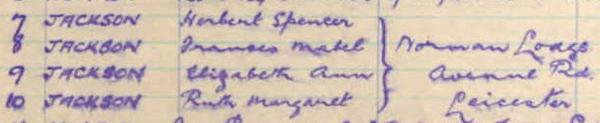 7 JACKSON Herbert Spencer
8 JACKSON Frances Mabel } Norman Lodge
9 JACKSON Elizabeth Ann } Avenue Rd.
10 JACKSON Ruth Margaret } Leicester